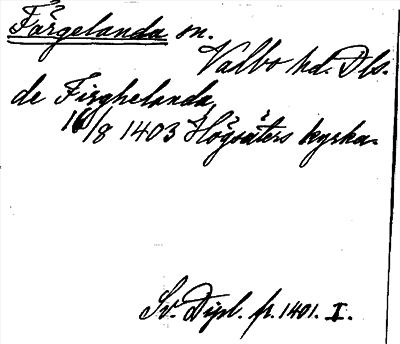 Färgelanda sn.
Valbo hd. Dls.
de Firghelanda
16/8 1403 Högsäters kyrka.
Sv. Dipl. fr. 1401. I.